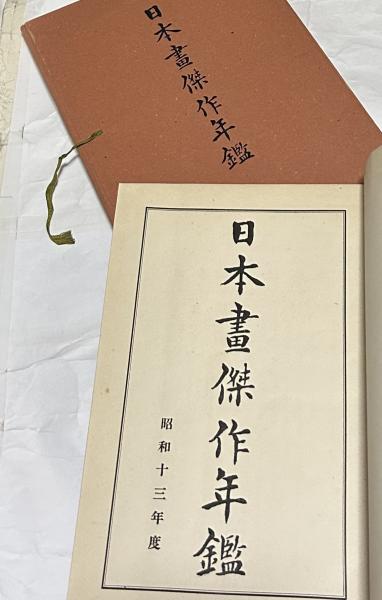 日本畫傑作年鑑
日本畫傑作年鑑
昭和十三年度